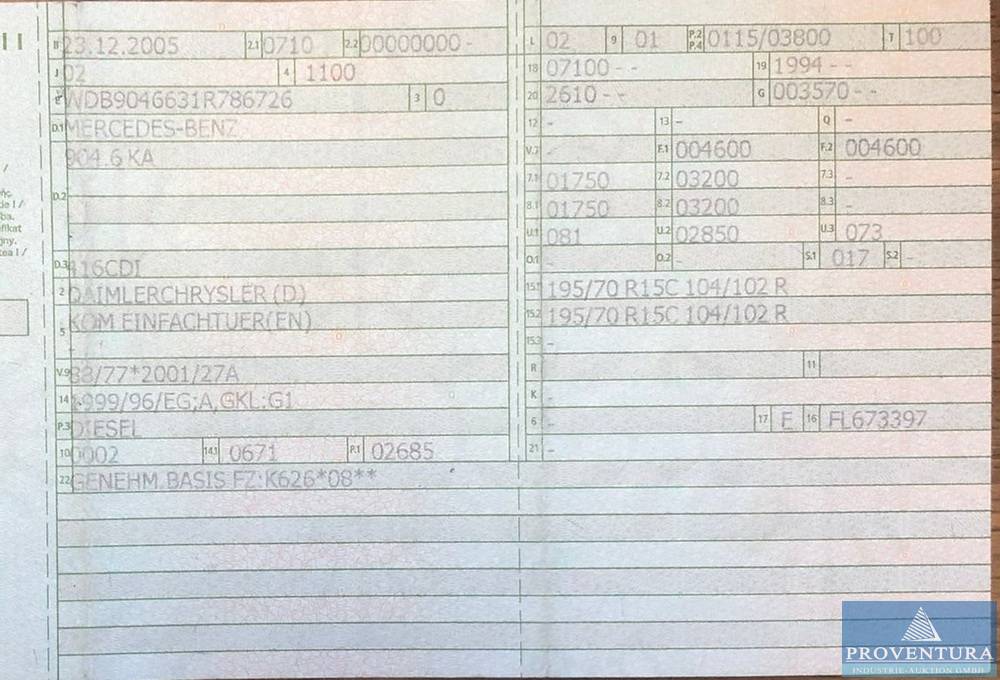 II
B 23.12.2005 2.1 0710 2.2 00000000 -
J 02 4 1100
E WDB9046631R786726 3 0
D.1 MERCEDES-BENZ
904.6 KA
D.2
D.3 416CDI
2 DAIMLERCHRYSLER (D)
5 KOM EINFACHTUER(EN)
V.9 88/77*2001/27A
14 1999/96/EG;A,GKL:G1
P.3 DIESEL
10 0002 14.1 0671 P.1 02685
22 GENEHM.BASIS FZ:K626*08**
L 02 9 01 P.2 P.4 0115/03800 T 100
18 07100 - - 19 1994 - -
20 2610 - - G 003570 - -
12 - 13 - Q -
V.7 - F.1 004600 F.2 004600
7.1 01750 7.2 03200 7.3 -
8.1 01750 8.2 03200 8.3 -
U.1 081 U.2 02850 U.3 073
O.1 - O.2 - S.1 017 S.2 -
15.1 195/70 R15C 104/102 R
15.2 195/70 R15C 104/102 R
15.3 -
R 11
K -
6 - 17 E 16 FL673397
21 -
PROVENTURA
INDUSTRIE-AUKTION GMBH